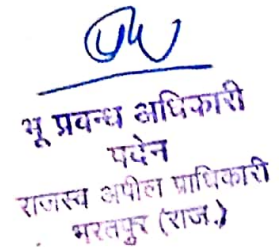 भू प्रवन्ध अधिकारी
पदेन
राजस्व अपील प्राधिकारी
भरतपुर (राज.)